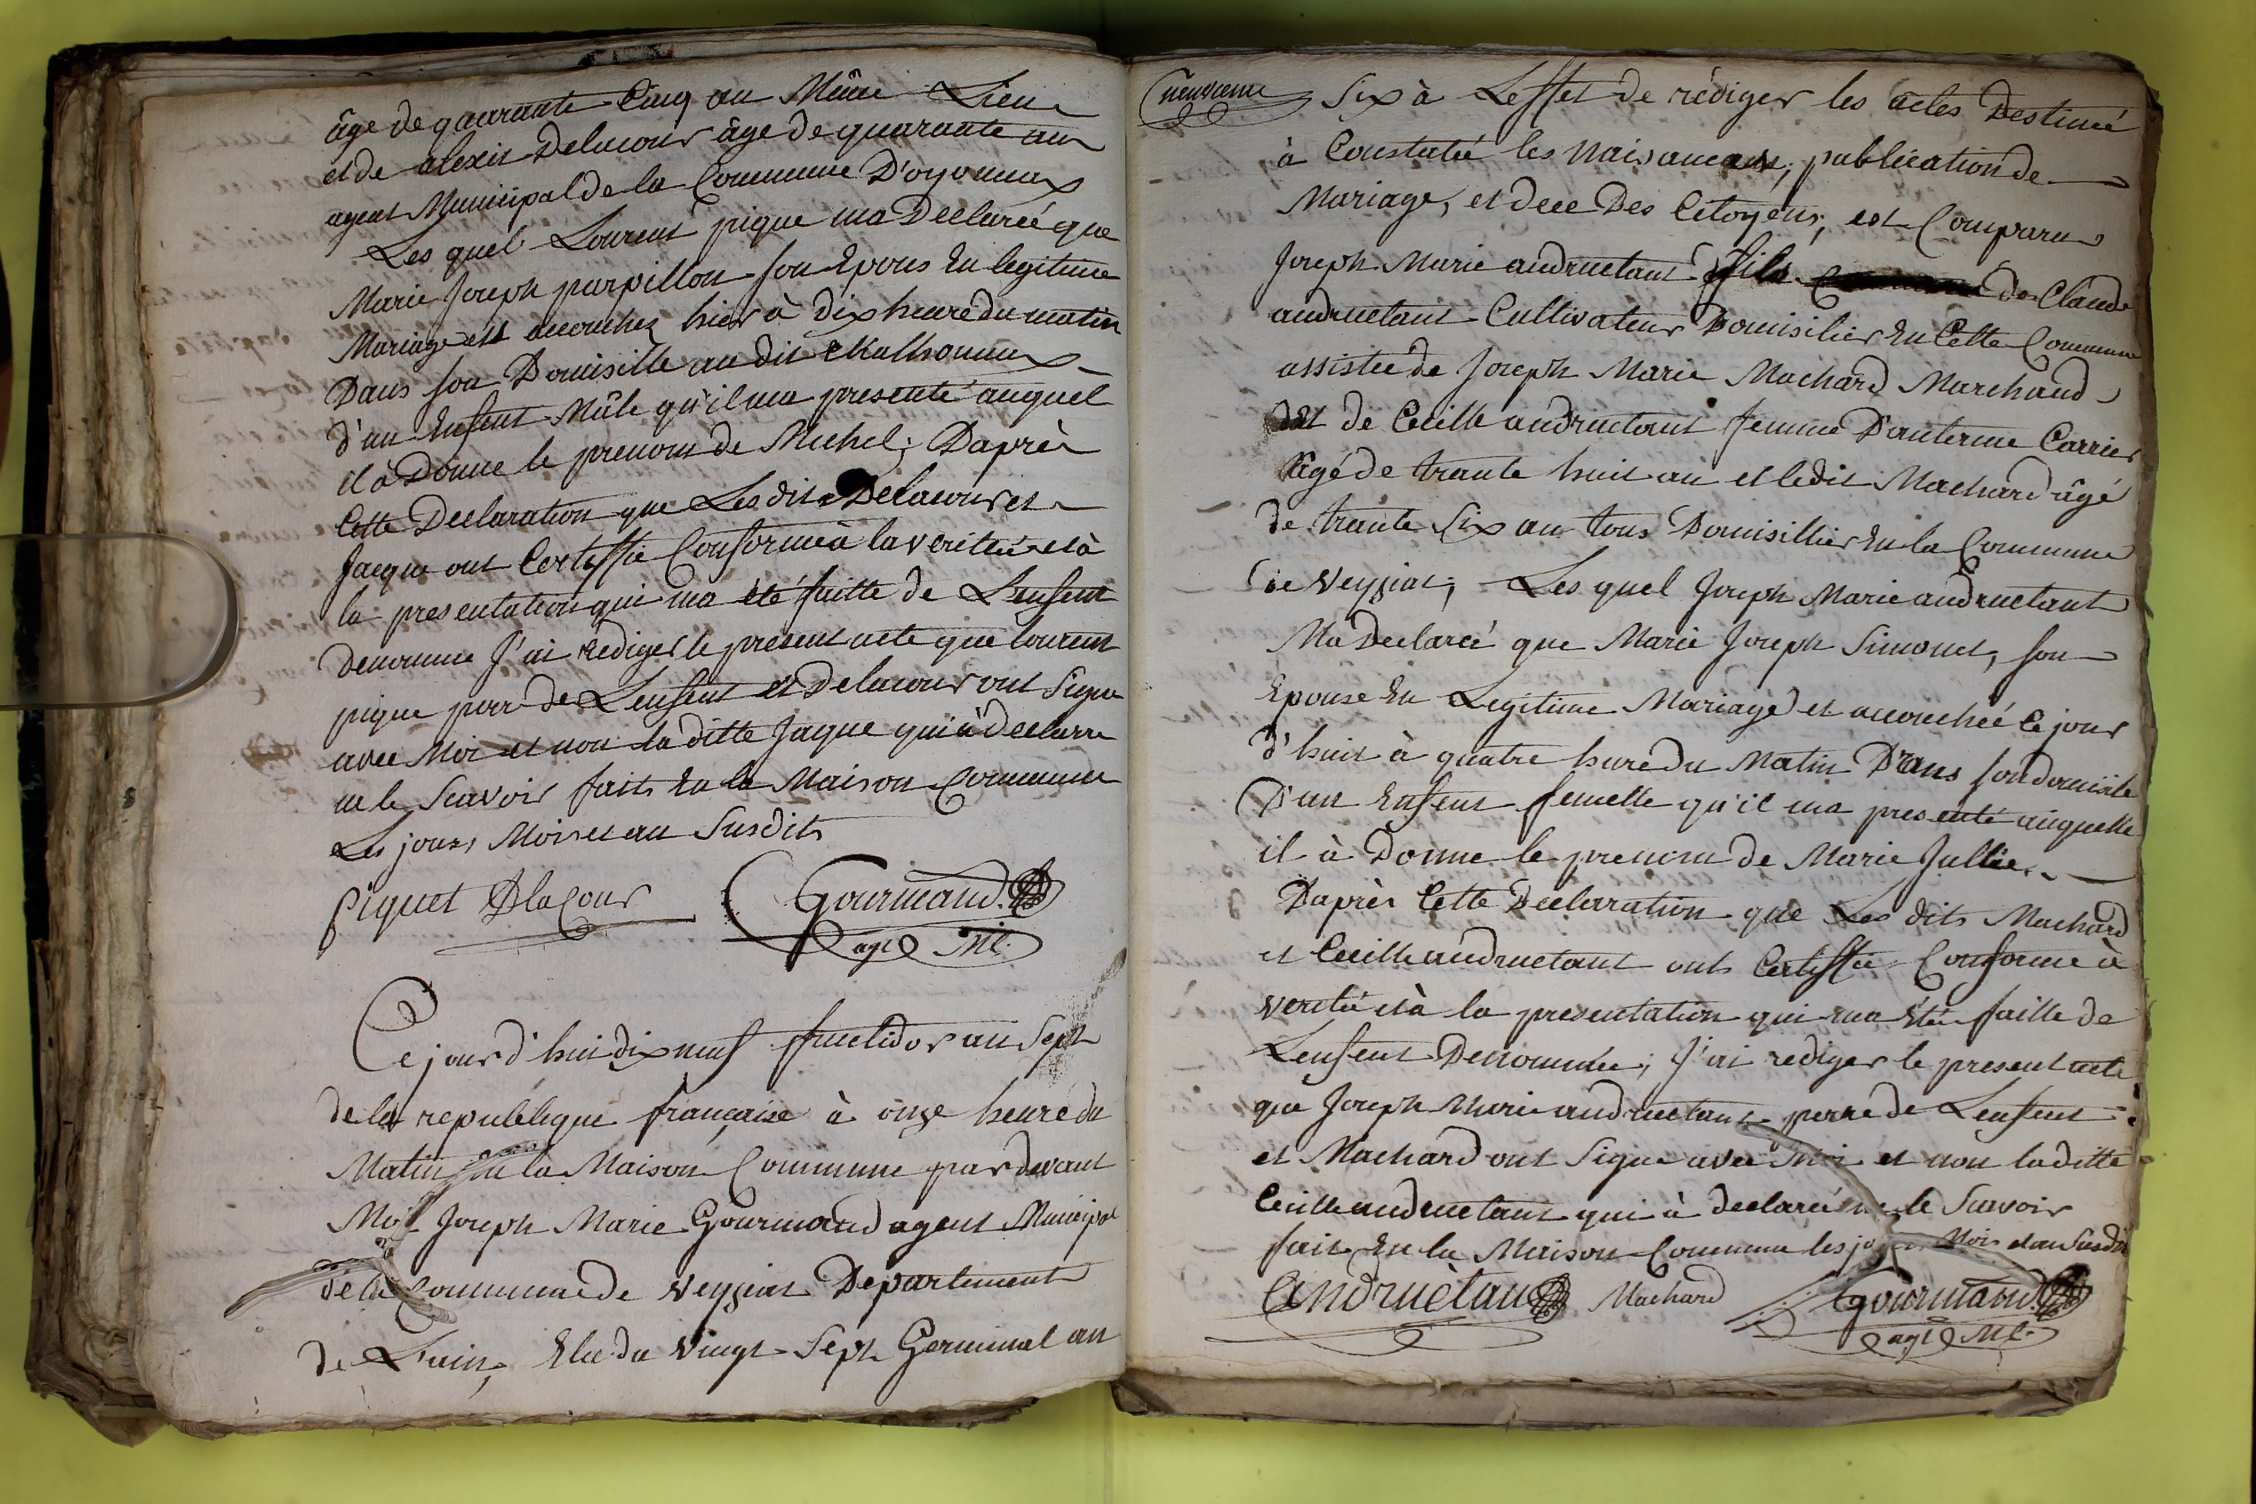 âge de quarante Cinq au Même Lieu
et de alexis Delacour âge de quarante an
agent Municipal de la Commune D'oyonnax
Les quel Lourent pique ma Declareé que
Marie Joseph parpillon son Epous En legitime
Mariage est accouchez hier à dix heure du matin
Dans son Domisille au dit
d'un Enfent Mâle qu'il ma presenté auquel
il à Donne le prenom de Michel; Daprès
Cette Declaration que Les dits Delacour et
Jacque ont Certiffie Conforme à la verité et à
la presentation qui ma été faitte de L'enfent
Denomme J'ai rediger le present acte que lourent
pique perre de L'enfent et Delacour ont Signe
avec Moi et non la ditte Jaque qui à declarre
ne le Scavoir fait En la Maison Commune
Les jours Mois et an Susdits
piquet Dlacour Gourmand
agt Ml.
Ce jourd'hui dix neuf fructidor an Sept
de la republique francaise à onze heure du
Matin En la Maison Commune par devant
Moi Joseph Marie Gourmand agent Municipal
de la Commune de Veyziat Departement
de L'ain, Elu du Vingt Sept Germinal an
neuvieme
Six à Leffet de rédiger les actes Destiné
à Constaté les Naisances, publication de
Mariage, et dece Des Citoyens; est Comparu
Joseph Marie andruetant fils de Claude
andruetant Cultivateur Domisilier En Cette Commune
assistée de Joseph Marie Machard Marchand
et de Cecille andruetant femme D'anterme Carrier
âgé de trante huit an et ledit Machard âgé
de trante Six an tous Domisillier En la Commune
de Veyziat; Les quel Joseph Marie andruetant
Ma Declareé que Marie Joseph Simonet, son
Epouse En Legitime Mariage et accouchée Ce jour
d'huis à quatre hure du Matin Dans son domisile
D'un Enfent femelle qu'il ma presenté auquelle
il à Donne le prenom de Marie Jullie.
Daprès Cette Declaration que Les dits Machard
et Cecille andruetant ont Certiffie Conforme à
verité et à la presentation qui ma Eté faitte de
L'enfent Denommée; J'ai rediger le present acte
que Joseph Marie andruetant perre de L'enfent
et Machard ont Signe avec Moi et non la ditte
Cecille andruetant qui à declareé ne le Savoir
fait En la Maison Commune les jours Mois et an Susdit
Andruètan Machard Gourmand
agt Ml.